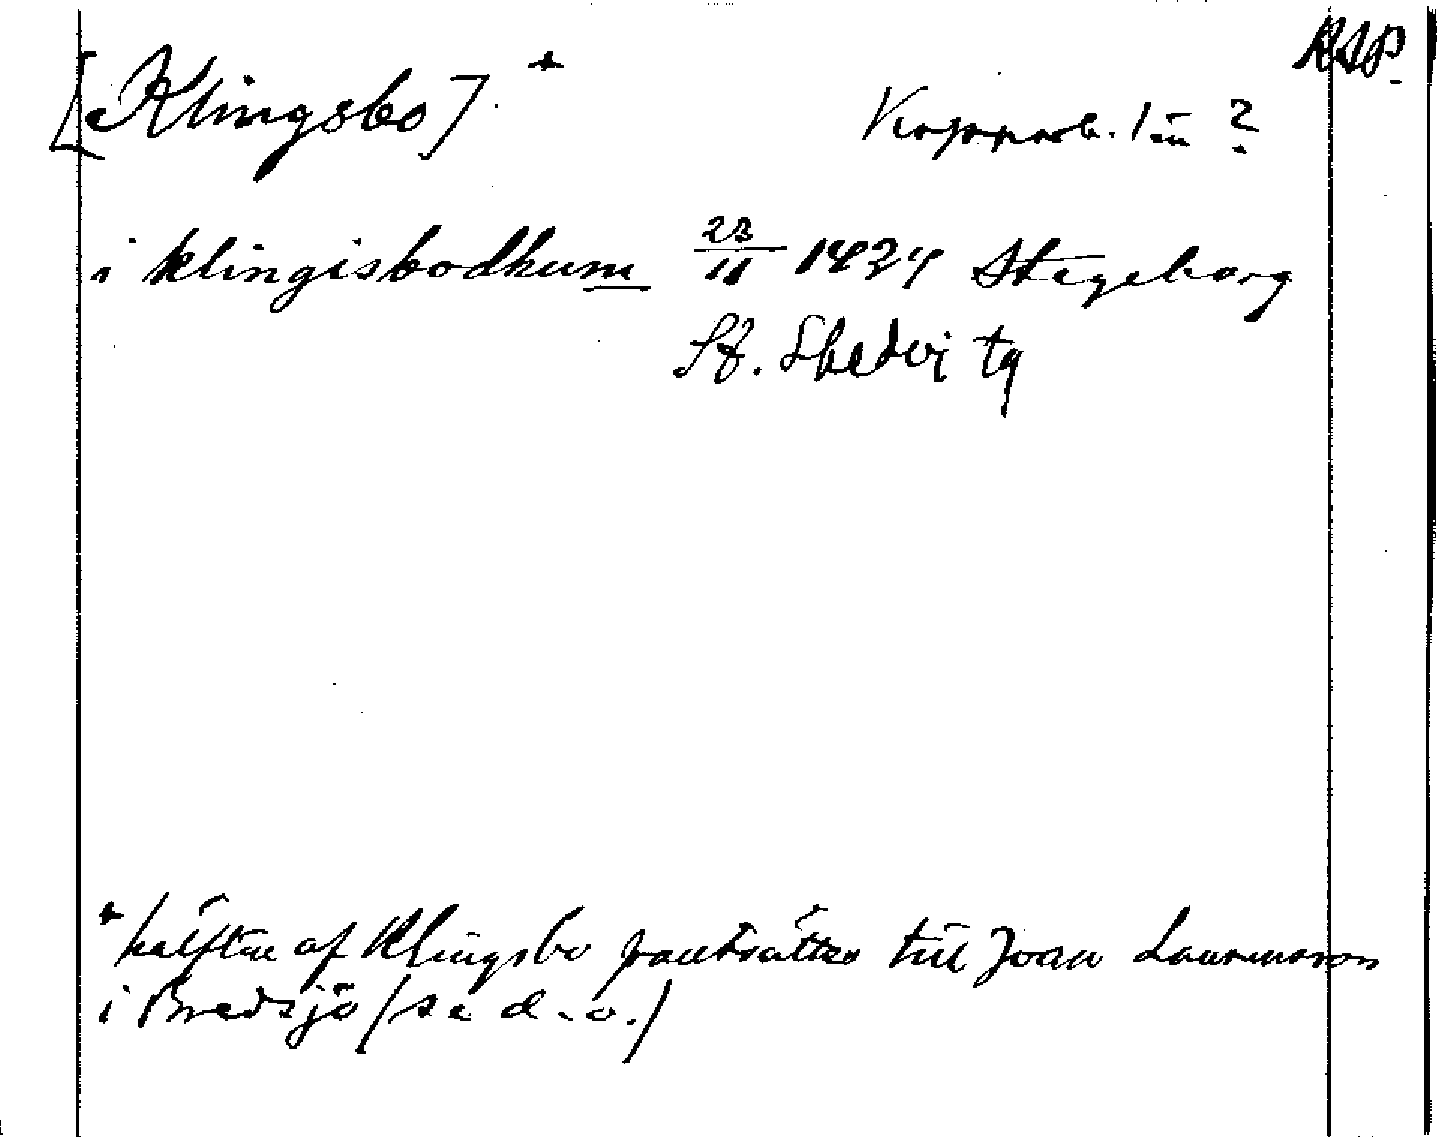 RAP.
[Klingsbo] +
Kopparb. län ?
i klingisbodhum 23/11 1434 Stegeborg
St. Skedvi tg
+ hälften af Klingsbo pantsättes till Joan Laurensson
i Bredsjö (se d. o.)